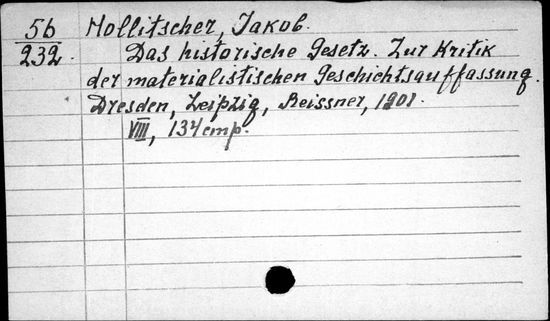 56 Hollitscher, Jakob.
232. Das historische Gesetz. Zur Kritik
der materialistischen Geschichtsauffassung.
Dresden, Leipzig, Reissner, 1901.
VIII, 134 стр.